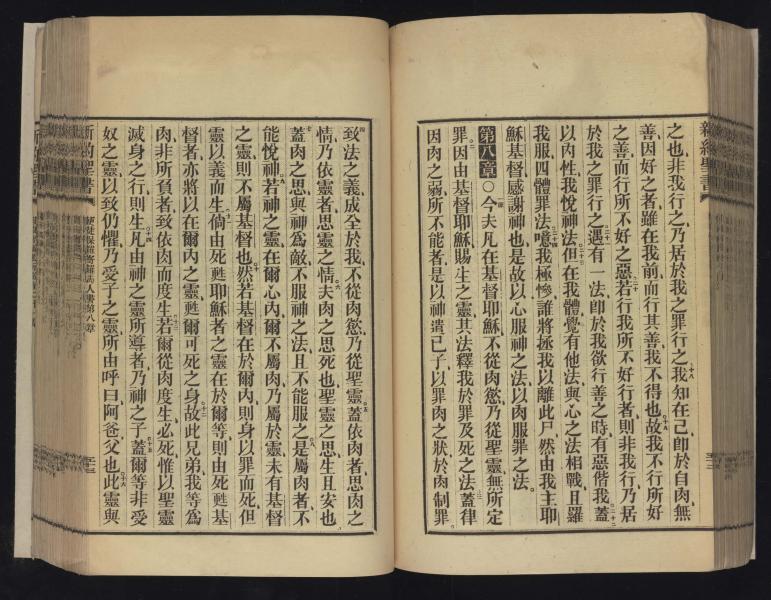 新約聖書
之也非我行之乃居於我之罪行之十八我知在己卽於自肉無
善因好之者雖在我前而行其善我不得也十九故我不行所好
之善而行所不好之惡二十若行我所不好行者則非我行乃居
於我之罪行之二十一遇有一法卽於我欲行善之時有惡偕我二十二蓋
以內性我悅神法二十三但在我體覺有他法與心之法相戰且羅
我服四體罪法二十四噫我極慘誰將拯我以離此尸二十五然由我主耶
穌基督感謝神也是故以心服神之法以肉服罪之法
第八章○一今夫凡在基督耶穌不從肉慾乃從聖靈無所定
罪二因由基督耶穌賜生之靈其法釋我於罪及死之法三蓋律
因肉之弱所不能者是以神遣己子以罪肉之狀於肉制罪
四致法之義成全於我不從肉慾乃從聖靈五蓋依肉者思肉之
情乃依靈者思靈之情六夫肉之思死也聖靈之思生且安也
七蓋肉之思與神爲敵不服神之法且不能服之八是屬肉者不
能悅神九若神之靈在爾心內爾不屬肉乃屬於靈未有基督
之靈則不屬基督也十然若基督在於爾內則身以罪而死但
靈以義而生十一倘由死甦耶穌者之靈在於爾等則由死甦基
督者亦將以在爾內之靈甦爾可死之身十二故此兄弟我等爲
肉非所負者致依肉而度生十三若爾從肉度生必死惟以聖靈
滅身之行則生十四凡由神之靈所導者乃神之子十五蓋爾等非受
奴之靈以致仍懼乃受子之靈所由呼曰阿爸父也十六此靈與
新約聖書 使徒保羅寄羅馬人書第八章